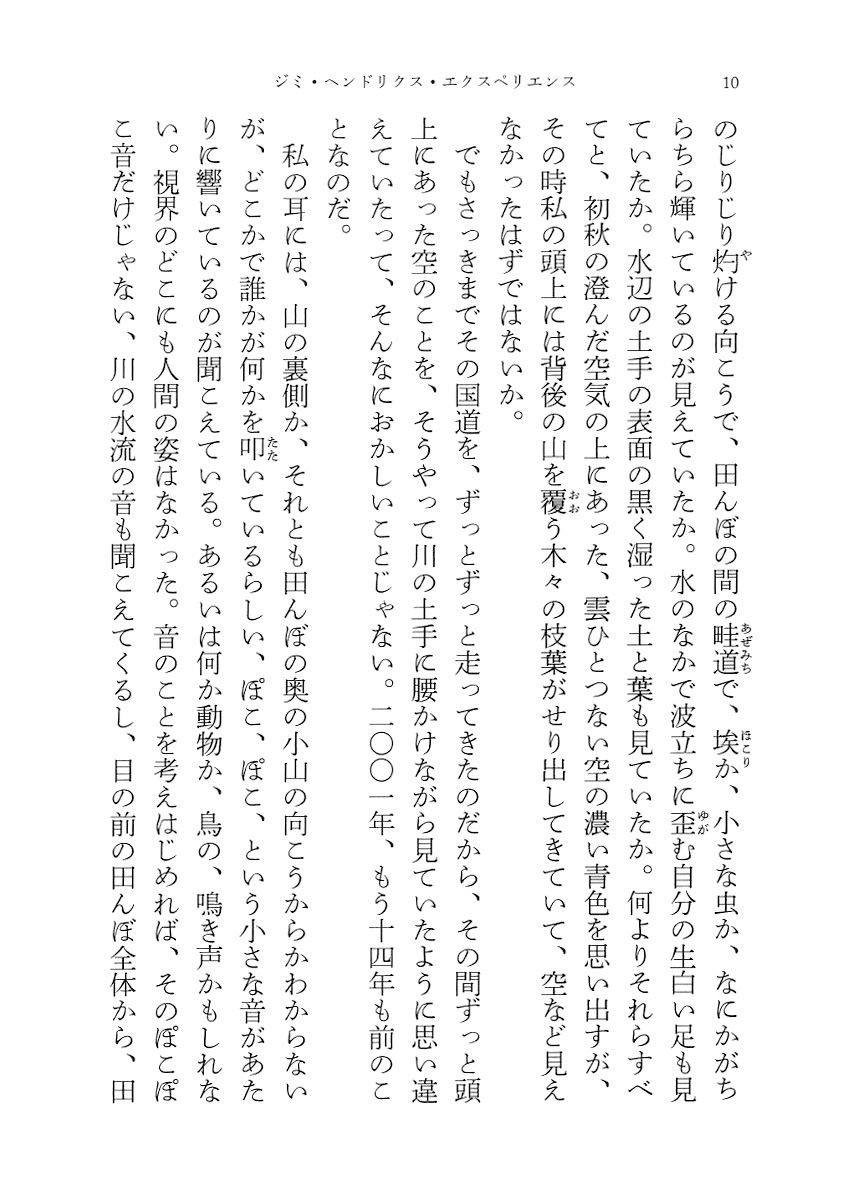 ジミ・ヘンドリクス・エクスペリエンス
10
のじりじり灼ける向こうで、田んぼの間の畦道で、埃か、小さな虫か、なにかがち
らちら輝いているのが見えていたか。水のなかで波立ちに歪む自分の生白い足も見
ていたか。水辺の土手の表面の黒く湿った土と葉も見ていたか。何よりそれらすべ
てと、初秋の澄んだ空気の上にあった、雲ひとつない空の濃い青色を思い出すが、
その時私の頭上には背後の山を覆う木々の枝葉がせり出してきていて、空など見え
なかったはずではないか。
でもさっきまでその国道を、ずっとずっと走ってきたのだから、その間ずっと頭
上にあった空のことを、そうやって川の土手に腰かけながら見ていたように思い違
えていたって、そんなにおかしいことじゃない。二〇〇一年、もう十四年も前のこ
となのだ。
私の耳には、山の裏側か、それとも田んぼの奥の小山の向こうからかわからない
が、どこかで誰かが何かを叩いているらしい、ぽこ、ぽこ、という小さな音があた
りに響いているのが聞こえている。あるいは何か動物か、鳥の、鳴き声かもしれな
い。視界のどこにも人間の姿はなかった。音のことを考えはじめれば、そのぽこぽ
こ音だけじゃない、川の水流の音も聞こえてくるし、目の前の田んぼ全体から、田